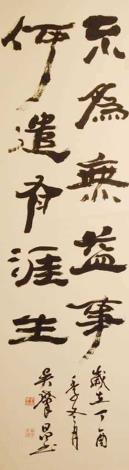 不為無益事
何遣有涯生
歲在丁酉
季冬月
吳肇昆書